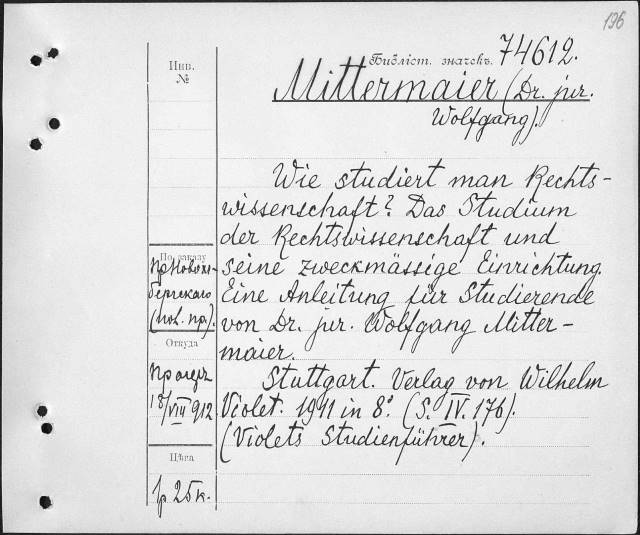 196
Библіот. значекъ. 74612.
Инв.
№
Mittermaier (Dr. jur.
Wolfgang).
Wie studiert man Rechts-
wissenschaft? Das Studium
der Rechtswissenschaft und
seine zweckmässige Einrichtung.
Eine Anleitung für Studierende
von Dr. jur. Wolfgang Mitter-
maier.
Stuttgart. Verlag von Wilhelm
Violet. 1911 in 8°. (S. IV. 176).
(Violets Studienführer).
По заказу
бергскаго
Откуда
18/VIII 912
Цѣна
1р 25к.